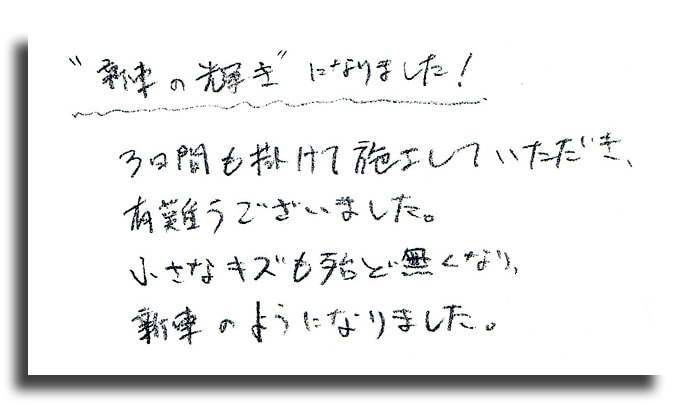 "新車の輝き"になりました!
3日間も掛けて施工していただき、
有難うございました。
小さなキズも殆ど無くなり、
新車のようになりました。